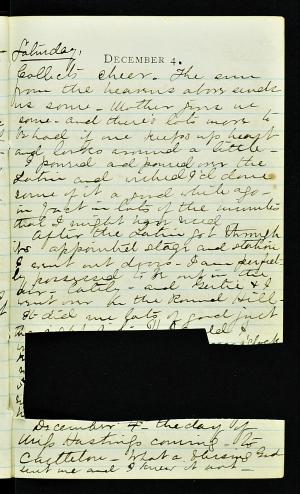 Saturday,
DECEMBER 4.
Collects cheer. The sun
from the heavens above sends
us some. Mother gives me
some - and there's lots more to
be had if one keeps up heart
and looks around a little.
I pored and pored over the
Latin and wished I'd done
some of it a good while ago -
in fact - lots of the minutes
that I might have used
After the Latin got through
its appointed stage and station
I went out doors - I am perfect-
ly possessed to be out in the
air lately - and Gertie & I
went over to the Round Hill -
It did me lots of good just
December 4 - the day of
Miss Hastings coming - to
What a blessing God
sent me and I knew it not -